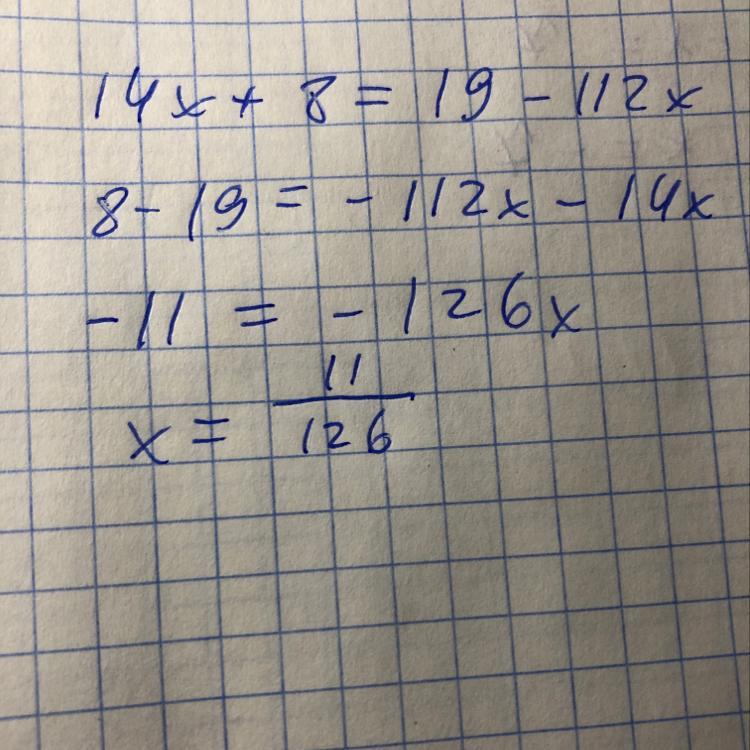 14x + 8 = 19 - 112x
8 - 19 = - 112x - 14x
- 11 = - 126x
x = 11/126